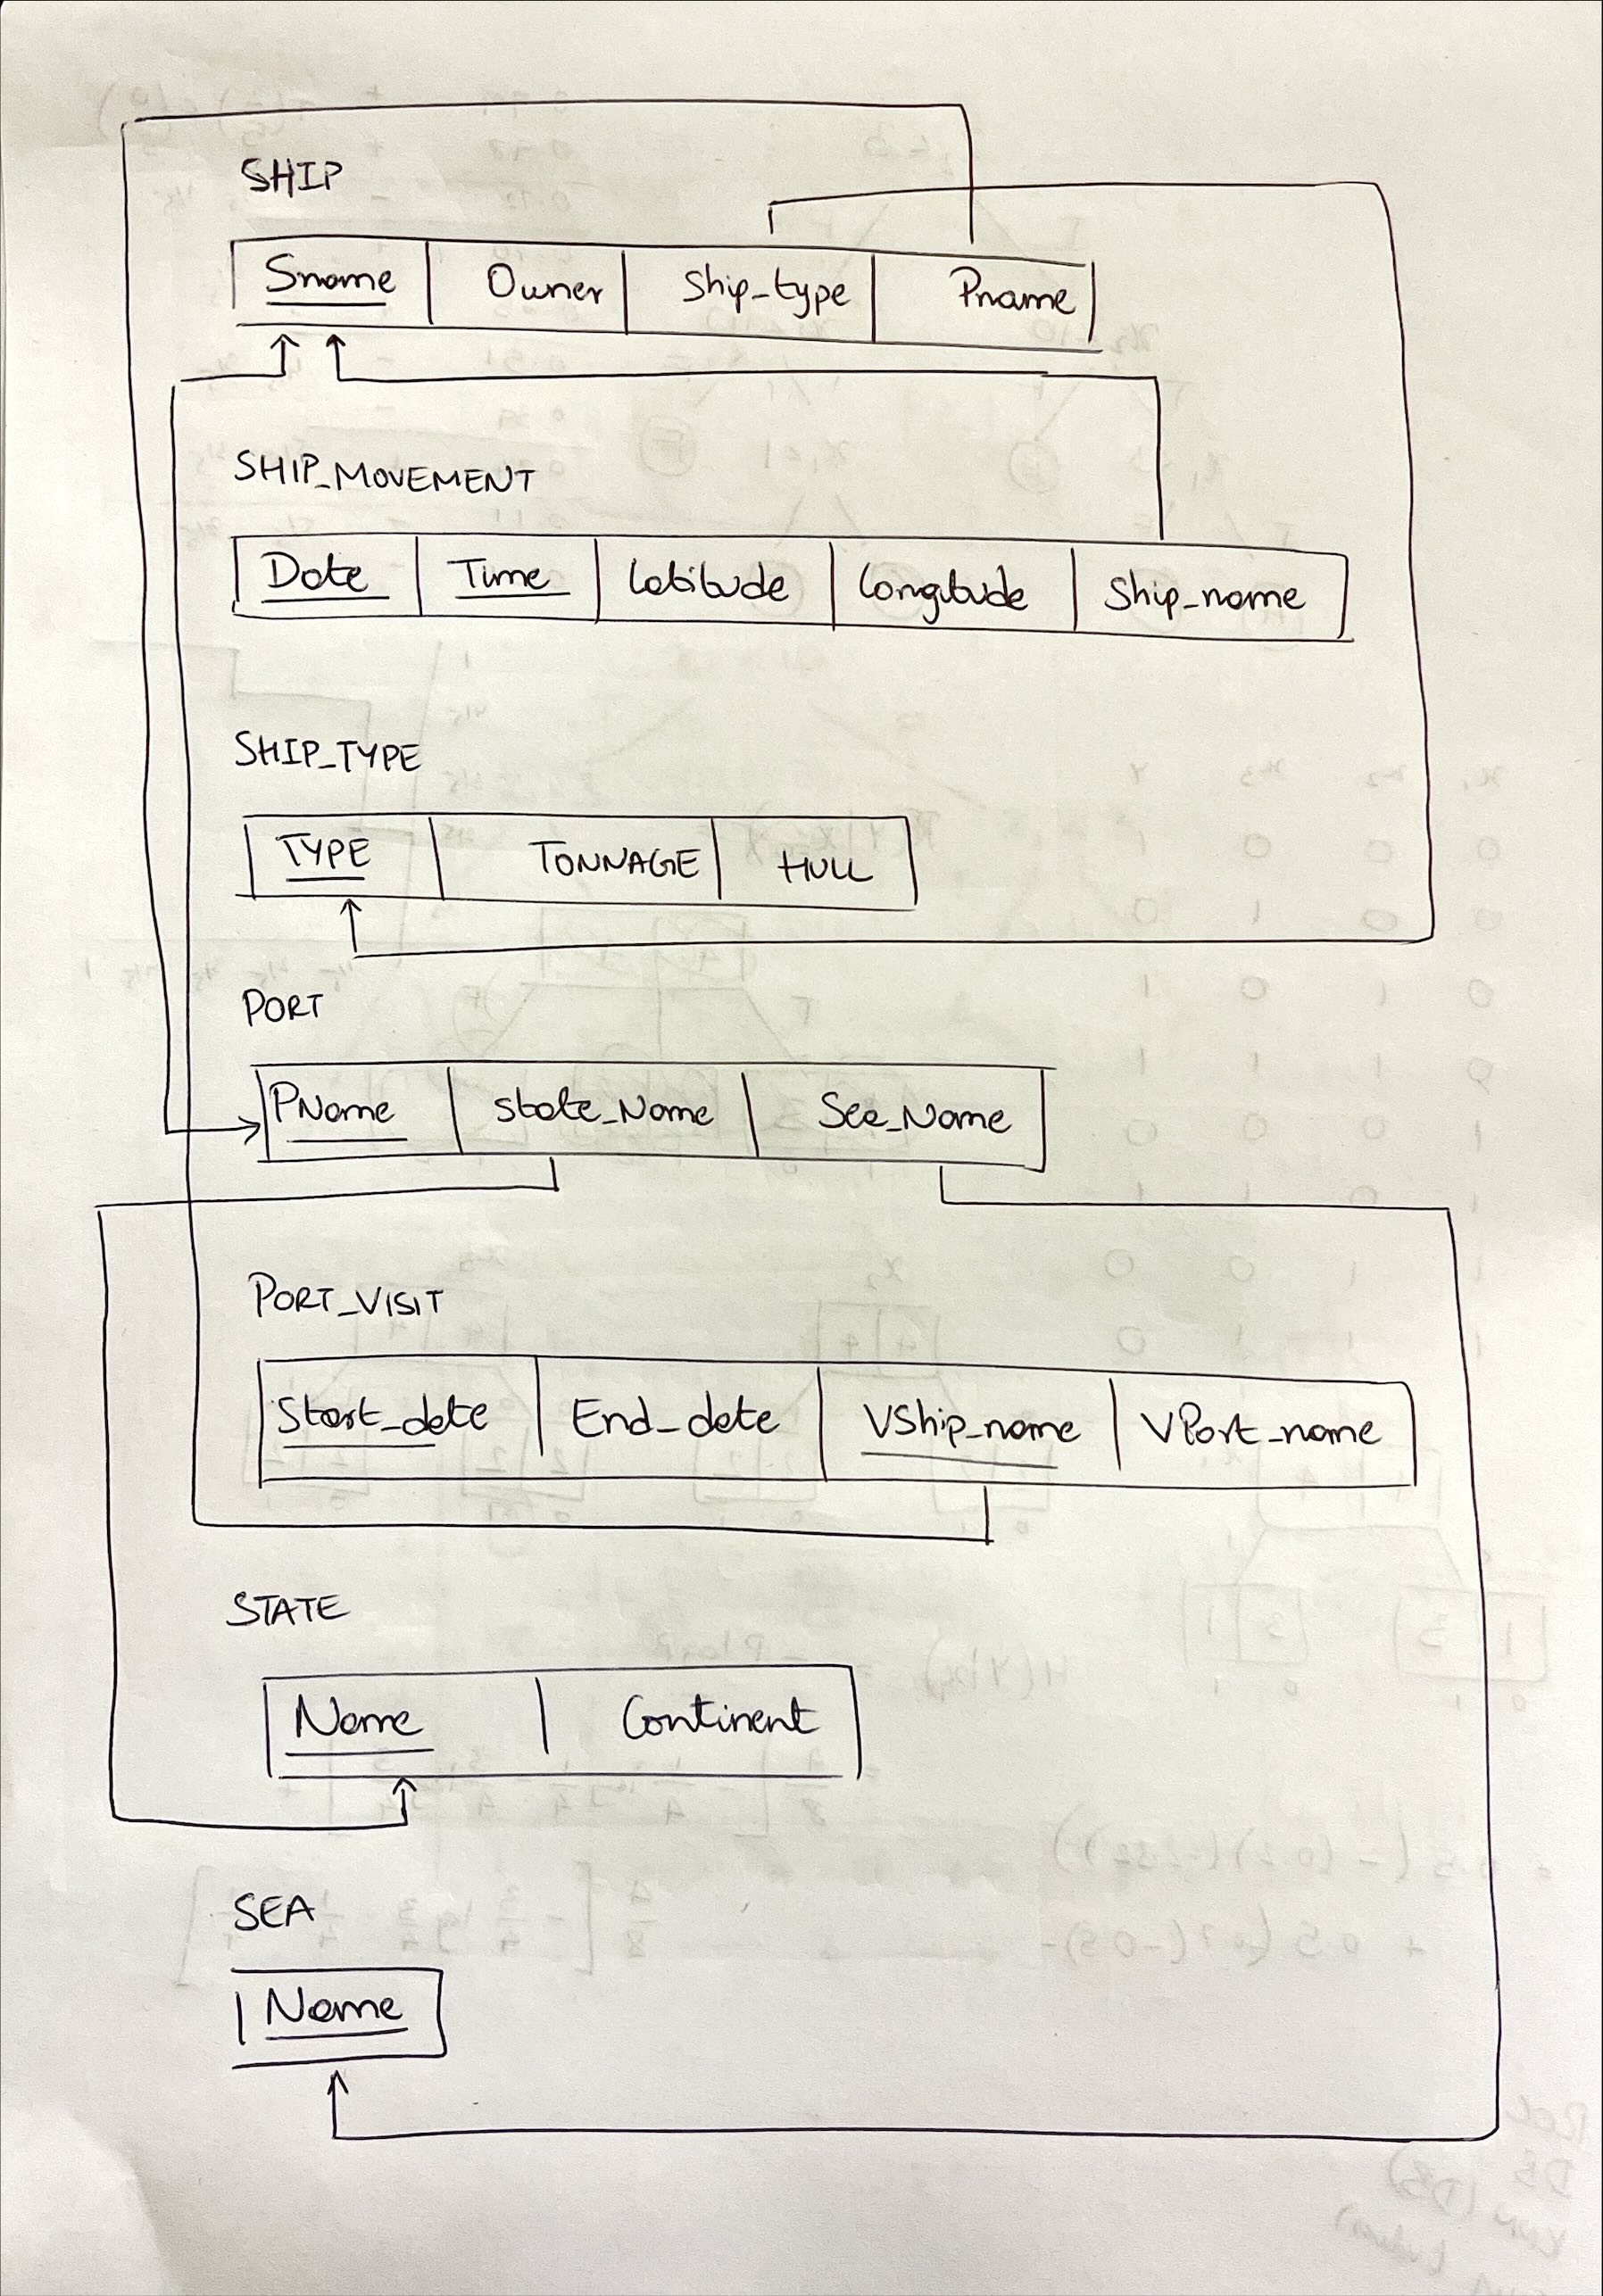 SHIP
Sname Owner Ship_type Pname
SHIP_MOVEMENT
Date Time Latitude Longitude Ship_name
SHIP_TYPE
TYPE TONNAGE HULL
PORT
PName State_Name Sea_Name
PORT_VISIT
Start_date End_date VShip_name VPort_name
STATE
Name Continent
SEA
Name